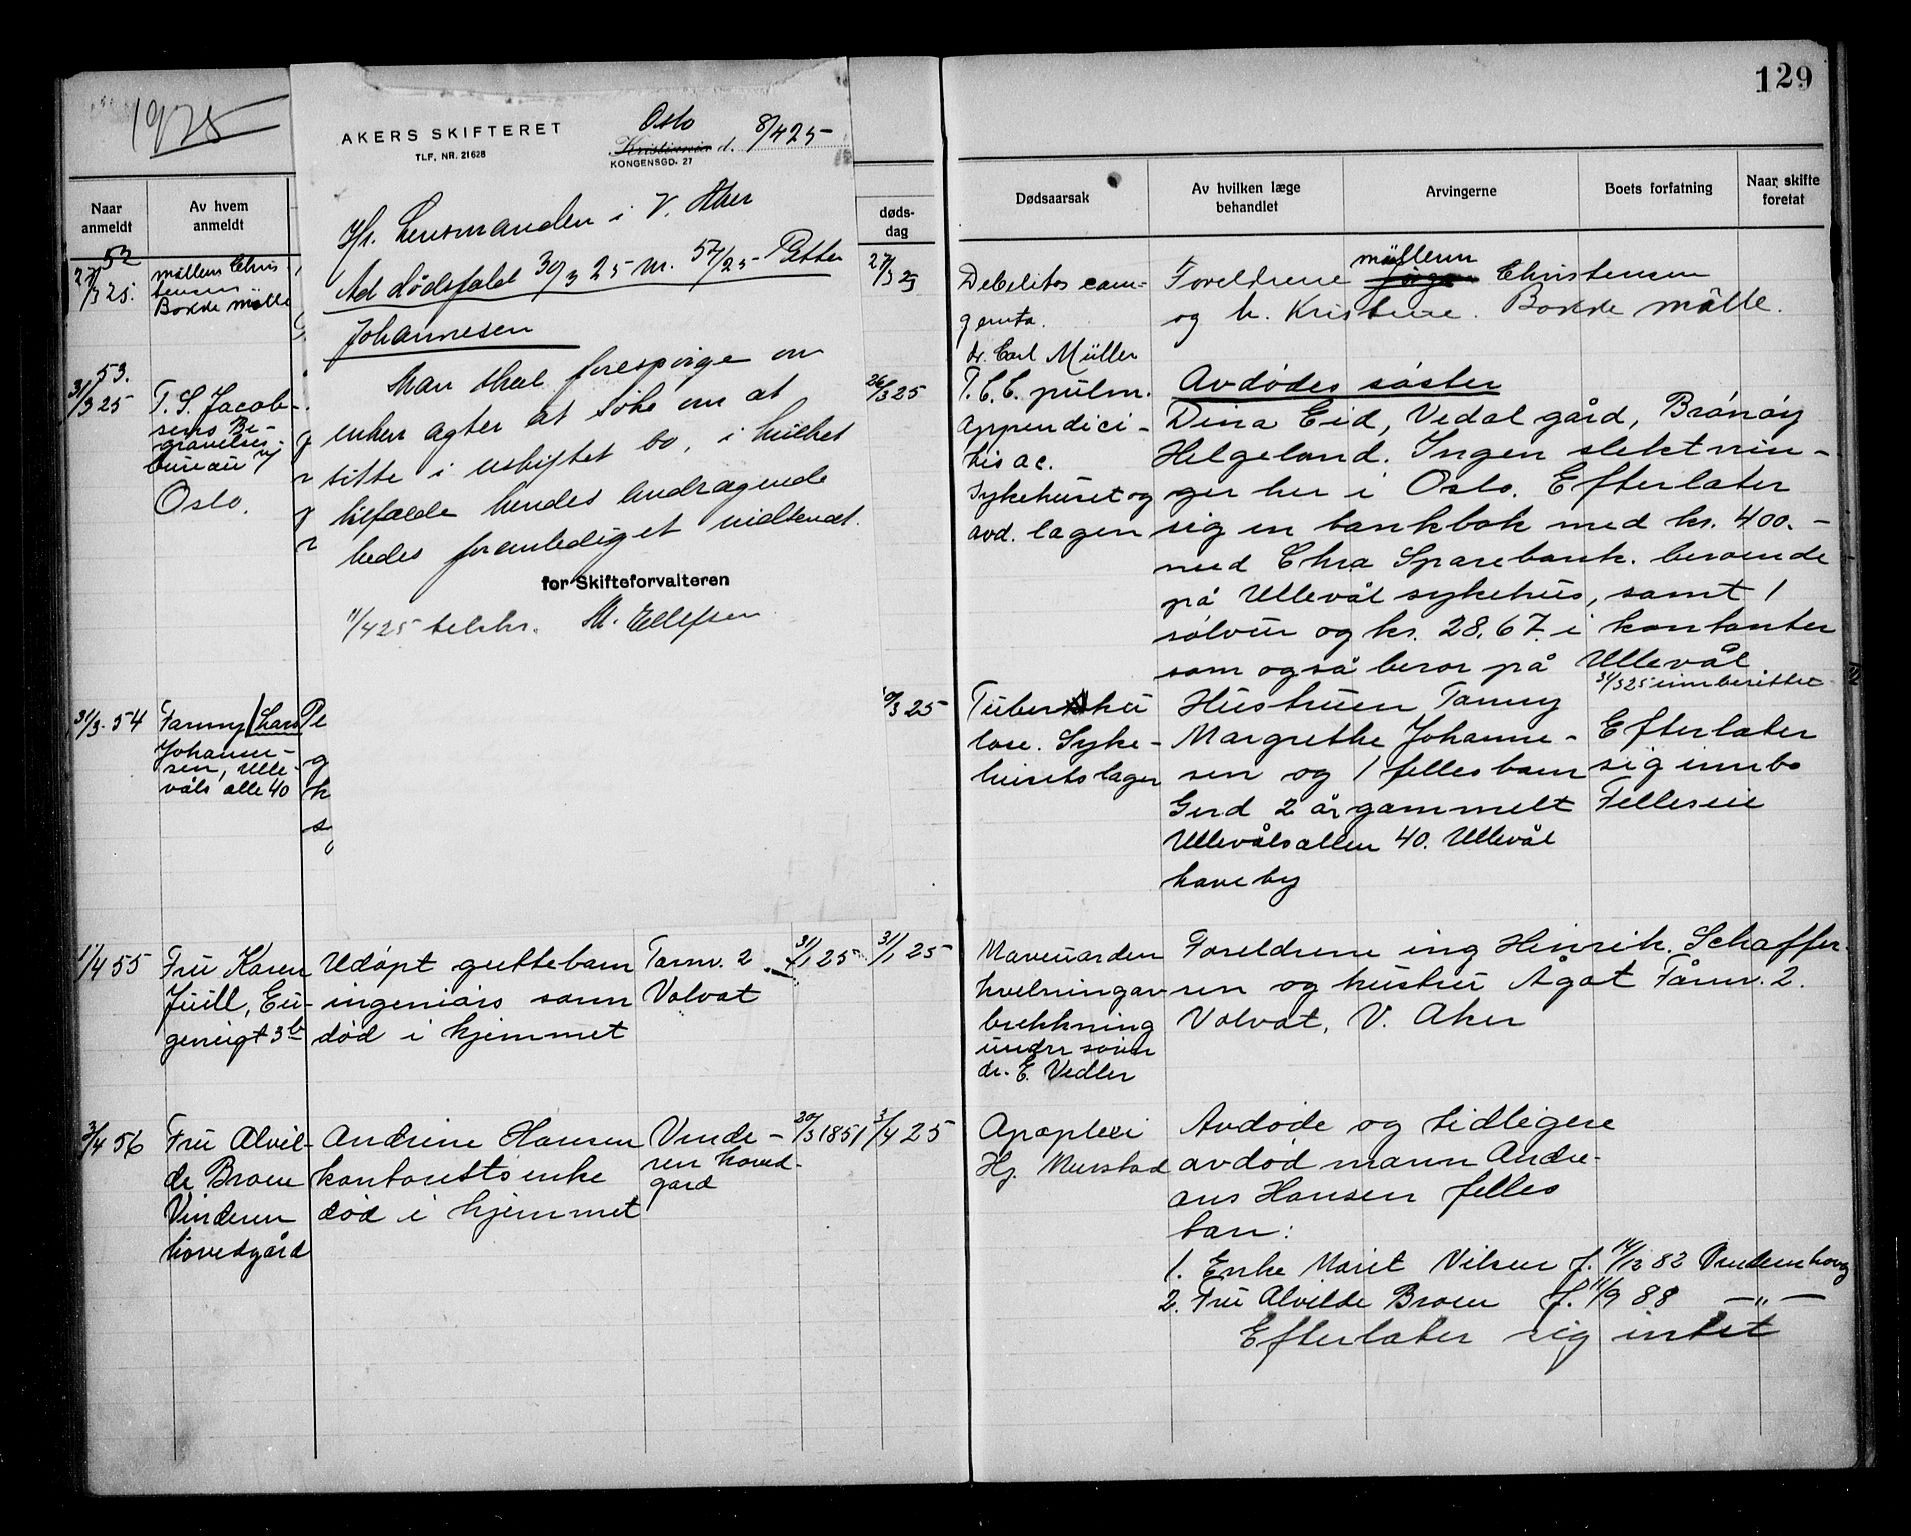 1925
129
Naar
anmeldt
Av hvem
anmeldt
AKERS SKIFTERET
TLF. NR. 21628
Oslo
Kristiania d. 8/4 25
KONGENSGD. 27
Hr. Lensmanden i V. Aker
Ad dødsfald 30/3 25 nr. 54/25 Petter
Johannesen
Man skal forespørge om
enken agter at søke om at
sitte i uskiftet bo, i hvilket
tilfælde hendes andragende
bedes foranlediget indsendt.
for Skifteforvalteren
11/4 25 telehr. M. Ellefsen
døds-
dag
Dødsaarsak
Av hvilken læge
behandlet
Arvingerne
Boets forfatning
Naar, skifte
foretat
52
27/3 25.
møllern Chris
tensen
Bokde mølle
27/3 25
Debelitas com-
genta.
dr. Carl Müller
møllern
Foreldrene Christensen
og h. Kristine. Bokde mølle.
53.
31/3 25
T. S. Jacob-
sens Be-
gravelses-
bureau
Oslo.
26/3 25
T.b.c. pulm.
appendici-
tis ac.
Sykehuset og
avd. lagen
Avdødes søster
Dina Eid, Vedal gård, Brønøy
Helgeland. Ingen slektnin-
ger her i Oslo. Efterlater
sig en bankbok med kr. 400.-
med Chra Sparebank. beroende
på Ullevål sykehus, samt 1
sølvur og kr. 28,67. i kontanter
som også beror på Ullevål
31/3 25 innberettet
31/3. 54
Fanny Lars
Johanne-
sen, Ulle-
våls alle 40
Pe
g
k
s
3 25
Tuberku
lose. Syke-
husets lager
Hustruen Fanny
Margrethe Johanne-
sen og 1 felles barn
Gerd 2 år gammelt
Ullevålsallen 40. Ullevål
have by
Efterlater
sig innbo
Felleseie
1/4 55
Fru Karen
Juill, Eu-
genisgt 3b
Udøpt guttebarn
ingeniørs sønn
død i hjemmet
Tårnv. 2
Volvat
31/1 25
31/1 25
Naveuarden
hvelningav
brekkning
under søvn
dr. E. Vedler
Foreldrene ing Hinrik. Schaffer-
sen og hustru Ågot Tårnv. 2.
Volvat, V. Aker
3/4 56
Fru Alvil-
de Broen
Vinderen
hovedgård
Andrine Hansen
kontorists enke
død i hjemmet
Vinde-
ren hoved-
gård
20/5 1851
3/4 25
Apoplexi
Hj. Murstad
Avdøde og tidligere
avdød mann Andre-
as Hansen felles
barn:
1. Enke Marit Nilsen f. 14/12 82 Vinderen hovg
2. Fru Alvilde Broen f. 11/9 88 — „ —
Efterlater sig intet